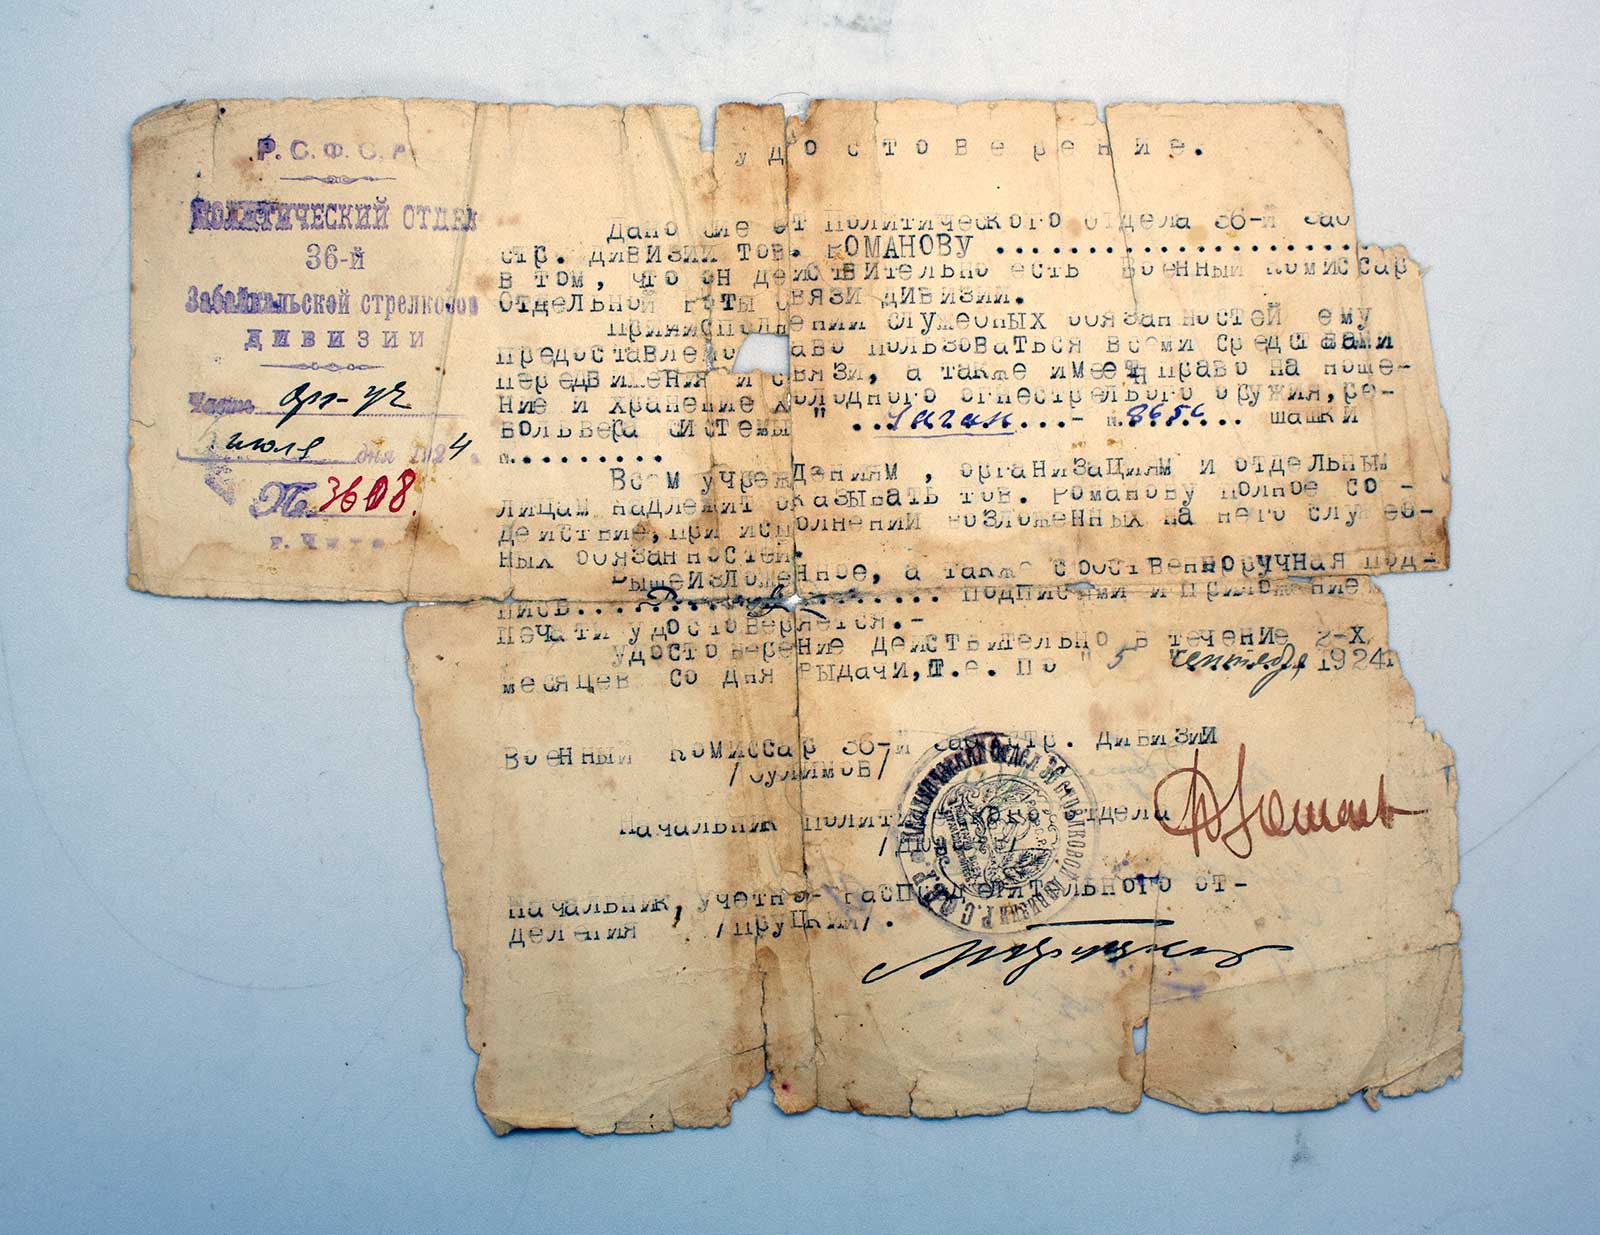 Р.С.Ф.С.Р
ПОЛИТИЧЕСКИЙ ОТДЕЛ
36-й
Забайкальской стрелковой
ДИВИЗИИ
Часть
июля дня 1924
№ 3608.
г. Чита
Удостоверение.
Дано сие от Политического отдела 36-й Заб
стр. дивизии тов. РОМАНОВУ ......................
в том, что он действительно есть Военный Комиссар
Отдельной Роты Связи дивизии.
При исполнении служебных обязанностей ему
предоставлено право пользоваться всеми средствами
передвижения и связи, а также имеет право на ноше-
ние и хранение холодного огнестрельного оружия, ре-
вольвера системы " ..Наган...- №.8656.... шашки
№.........
Всем учреждениям , организациям и отдельным
лицам надлежит оказывать тов. Романову полное со -
действие, при исполнении возложенных на него служеб-
ных обязанностей.
Вышеизложенное, а также собственноручная под-
пись.... ....... подписями и приложением
печати удостоверяется.-
Удостоверение действительно в течение 2-х
месяцев со дня выдачи, т.е. по " 5 " сентября 1924г
Военный Комиссар 36-й Заб стр. дивизии
/Сулимов/
Начальник Полити кого отдела
Начальник, учетно- распределительного от-
деления /Пруцкий/.